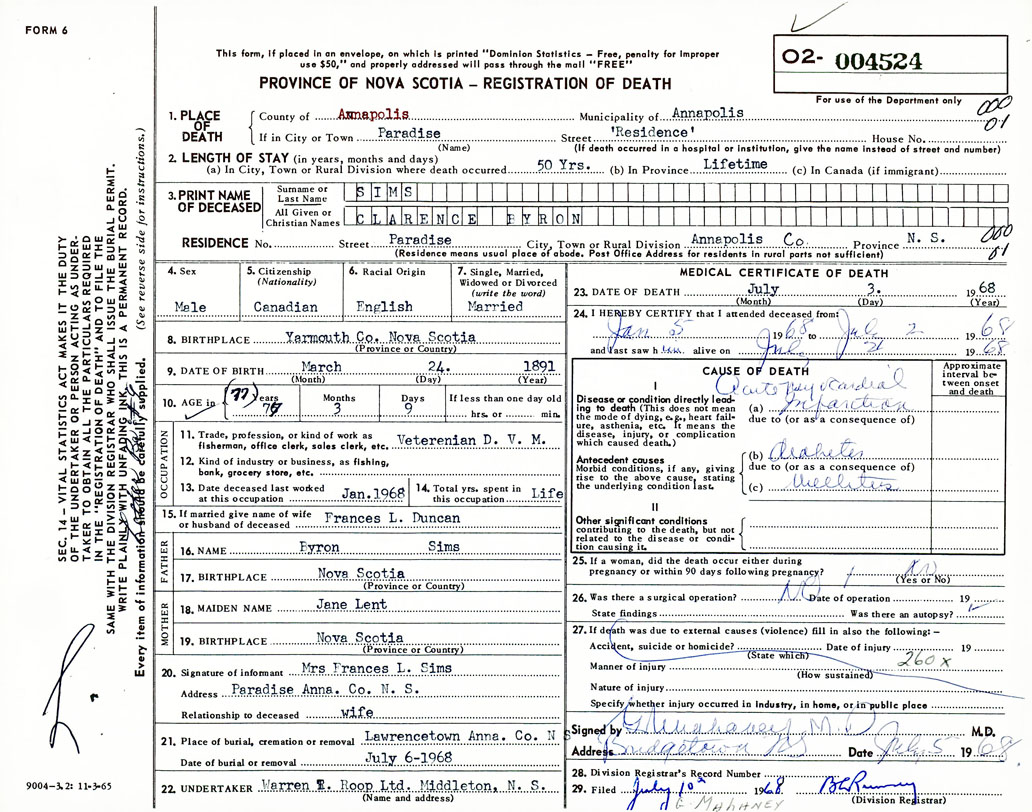 FORM 6
This form, if placed in an envelope, on which is printed "Dominion Statistics – Free, penalty for improper
use $50," and properly addressed will pass through the mail "FREE"
PROVINCE OF NOVA SCOTIA – REGISTRATION OF DEATH
O2- 004524
For use of the Department only
000
01
1. PLACE OF DEATH
County of Annapolis Municipality of Annapolis
If in City or Town Paradise Street 'Residence' House No.
(Name) (If death occurred in a hospital or institution, give the name instead of street and number)
2. LENGTH OF STAY (in years, months and days)
(a) In City, Town or Rural Division where death occurred 50 Yrs. (b) In Province Lifetime (c) In Canada (if immigrant)
3. PRINT NAME OF DECEASED
Surname or Last Name SIMS
All Given or Christian Names CLARENCE BYRON
RESIDENCE No. Street Paradise City, Town or Rural Division Annapolis Co. Province N. S.
(Residence means usual place of abode. Post Office Address for residents in rural parts not sufficient)
000
01
4. Sex Male
5. Citizenship (Nationality) Canadian
6. Racial Origin English
7. Single, Married, Widowed or Divorced (write the word) Married
8. BIRTHPLACE Yarmouth Co. Nova Scotia
(Province or Country)
9. DATE OF BIRTH March 24. 1891
(Month) (Day) (Year)
10. AGE in Years 77 Months 3 Days 9 If less than one day old
hrs. or min.
OCCUPATION
11. Trade, profession, or kind of work as fisherman, office clerk, sales clerk, etc. Veterenian D. V. M.
12. Kind of industry or business, as fishing, bank, grocery store, etc.
13. Date deceased last worked at this occupation Jan.1968
14. Total yrs. spent in this occupation Life
15. If married give name of wife or husband of deceased Frances L. Duncan
FATHER
16. NAME Byron Sims
17. BIRTHPLACE Nova Scotia
(Province or Country)
MOTHER
18. MAIDEN NAME Jane Lent
19. BIRTHPLACE Nova Scotia
(Province or Country)
20. Signature of informant Mrs Frances L. Sims
Address Paradise Anna. Co. N. S.
Relationship to deceased wife
21. Place of burial, cremation or removal Lawrencetown Anna. Co. N S
Date of burial or removal July 6-1968
22. UNDERTAKER Warren T. Roop Ltd. Middleton, N. S.
(Name and address)
MEDICAL CERTIFICATE OF DEATH
23. DATE OF DEATH July 3. 1968
(Month) (Day) (Year)
24. I HEREBY CERTIFY that I attended deceased from:
Jan 5 1968 to July 2 1968
and last saw h im alive on July 2 1968
CAUSE OF DEATH
Approximate interval between onset and death
I
Disease or condition directly leading to death (This does not mean the mode of dying, e.g., heart failure, asthenia, etc. It means the disease, injury, or complication which caused death.)
Acute myocardial
(a) Infarction
due to (or as a consequence of)
Antecedent causes
Morbid conditions, if any, giving rise to the above cause, stating the underlying condition last.
(b) Diabetes
due to (or as a consequence of)
(c) Mellitus
II
Other significant conditions contributing to the death, but not related to the disease or condition causing it.
25. If a woman, did the death occur either during
pregnancy or within 90 days following pregnancy?
(Yes or No)
26. Was there a surgical operation? No Date of operation 19
State findings Was there an autopsy?
27. If death was due to external causes (violence) fill in also the following: –
Accident, suicide or homicide? Date of injury 19
(State which)
260 x
Manner of injury
(How sustained)
Nature of injury
Specify whether injury occurred in industry, in home, or in public place
Signed by M.D. M.D.
Address Bridgetown NS Date July 5 1968
28. Division Registrar's Record Number
29. Filed July 10th 1968
(Division Registrar)
MAHANEY
SEC. 14 – VITAL STATISTICS ACT MAKES IT THE DUTY
OF THE UNDERTAKER OR PERSON ACTING AS UNDER-
TAKER TO OBTAIN ALL THE PARTICULARS REQUIRED
IN THE "REGISTRATION OF DEATH" AND TO FILE THE
SAME WITH THE DIVISION REGISTRAR WHO SHALL ISSUE THE BURIAL PERMIT.
WRITE PLAINLY WITH UNFADING INK. THIS IS A PERMANENT RECORD.
Every item of information should be carefully supplied. (See reverse side for instructions.)
9004-3.2: 11-3-65